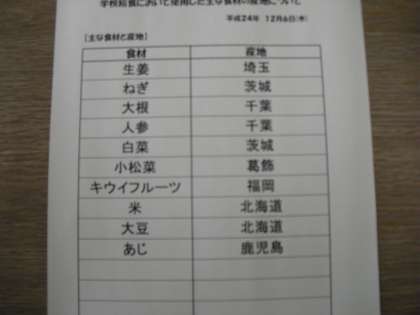 学校給食において使用した主な食材の産地について
平成24年 12月6日(木)
[主な食材と産地]
食材 産地
生姜 埼玉
ねぎ 茨城
大根 千葉
人参 千葉
白菜 茨城
小松菜 葛飾
キウイフルーツ 福岡
米 北海道
大豆 北海道
あじ 鹿児島